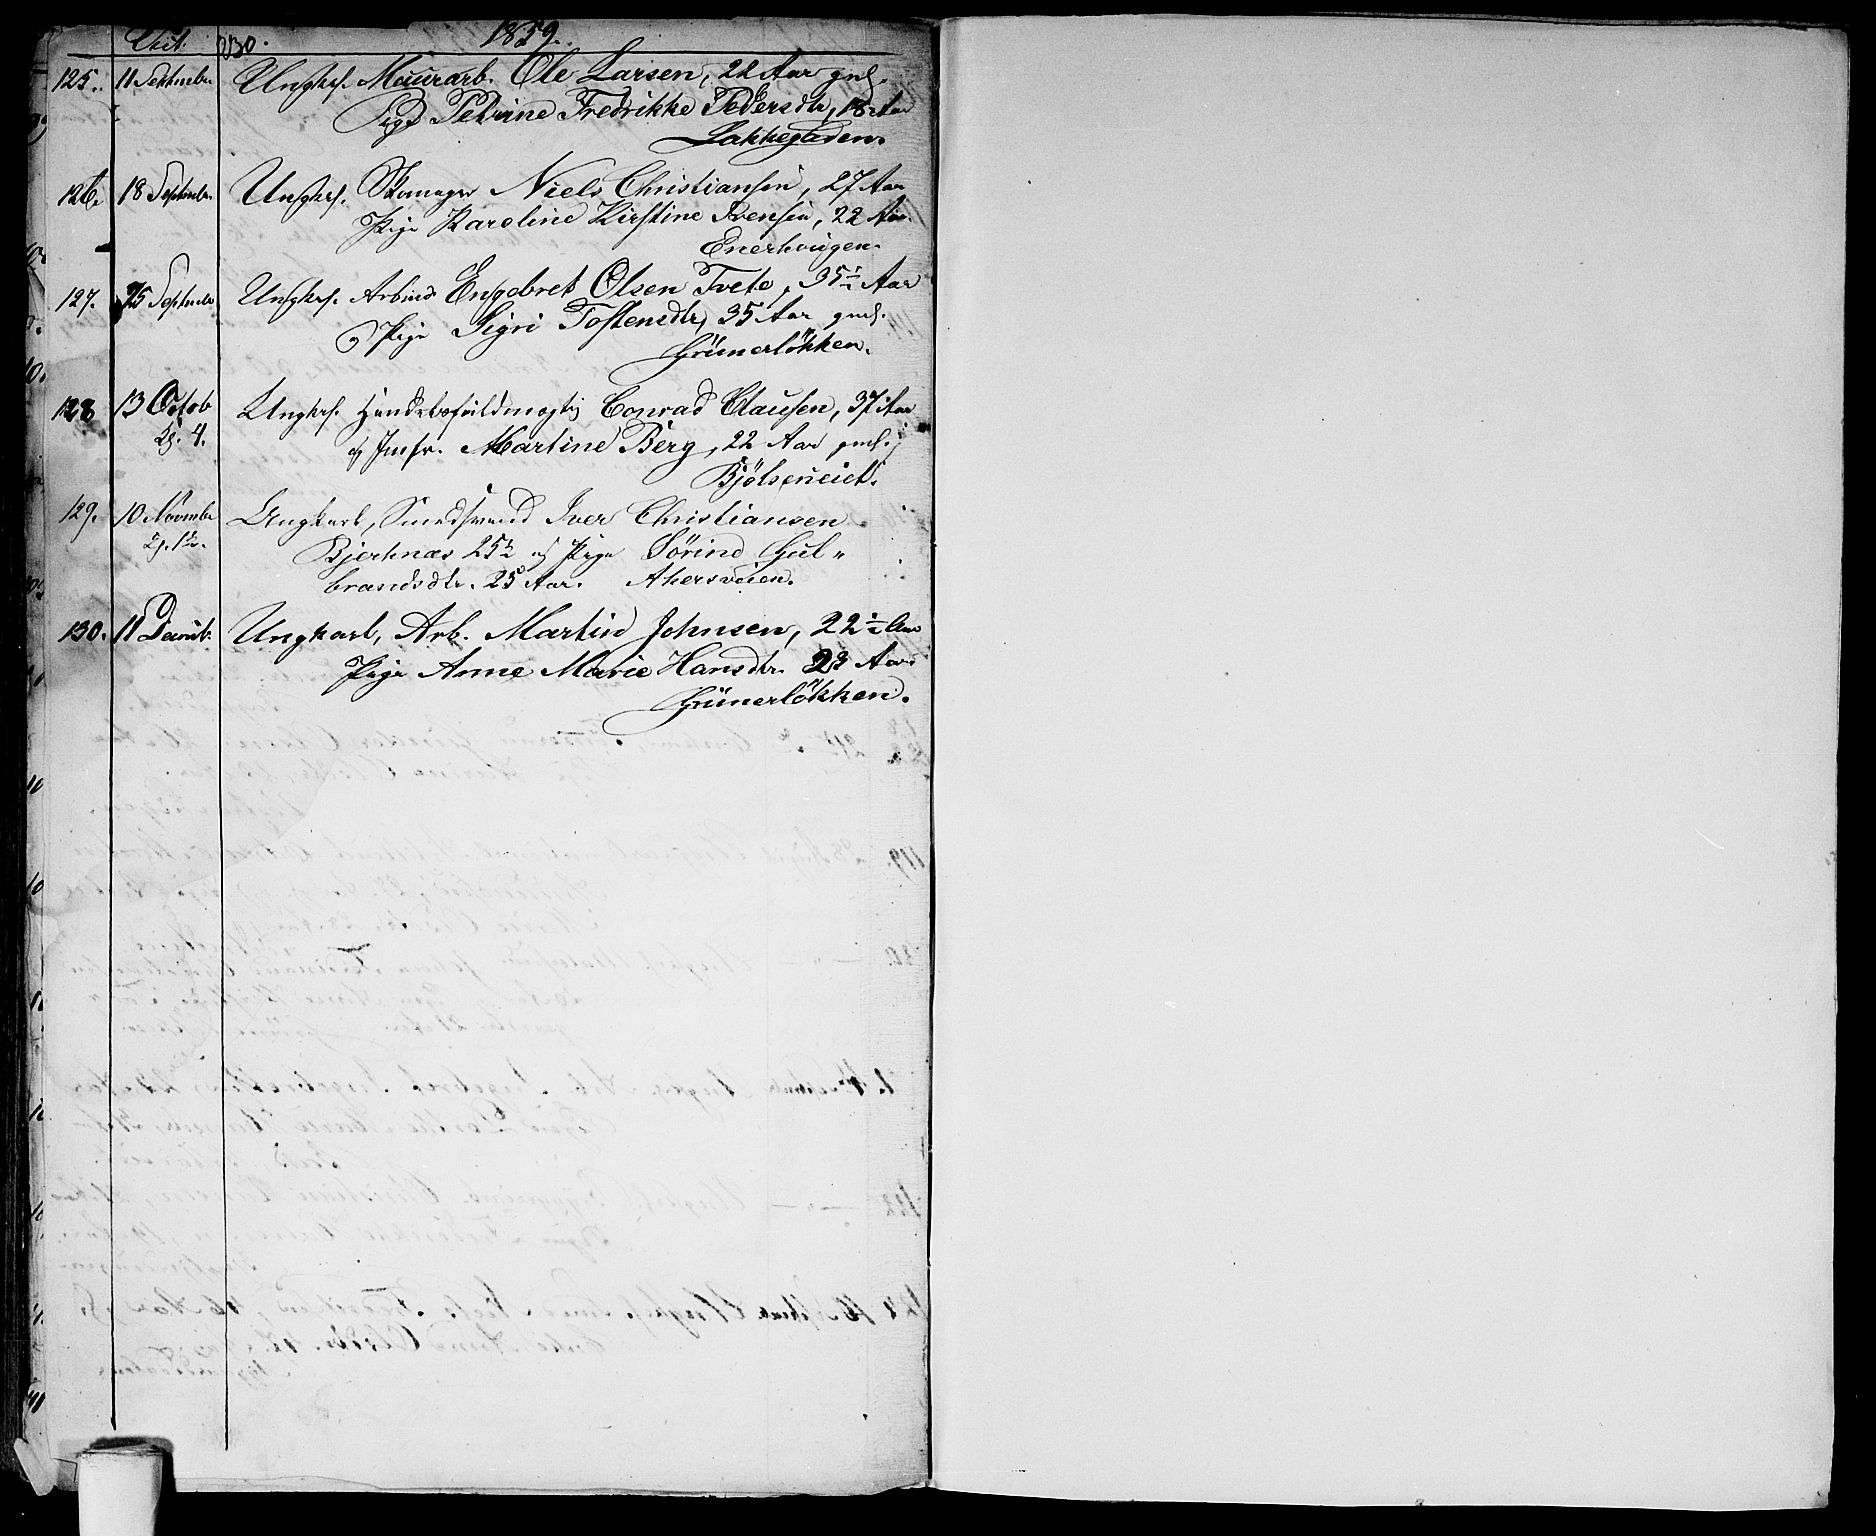 Viet. 130. 1859.
125. 11 September Ungkrl. Maurarb. Ole Larsen, 22 Aar gml.
Pige Petrine Fredrikke Pedersdtr, 18 Aar
Lakkegaden.
126. 18 September Ungkrl. Skomager Niels Christiansen, 27 Aar
Pige Karoline Kirstine Svensen, 22 Aar.
Enerhougen.
127. 25 September Ungkrl. Arbmd Engebret Olsen Tvete, 35½ Aar
Pige Sigri Tostensdtr, 35 Aar gml.
Grünerløkken.
128 13 Octob Ungkrl. Handelsfuldmægtig Conrad Clausen, 37 Aar
Kl. 4. og Jmfr. Martine Berg, 22 Aar gml.
Bjølseneiet.
129. 10 Novembr Ungkarl, Smedsvend Iver Christiansen
Bjerknæs 25½ og Pige Sørine Gul-
brandsdtr. 25 Aar. Akersveien.
130. 11 Decmb. Ungkarl, Arb. Martin Johnsen, 22½ Aar
Pige Anne Marie Hansdtr. 23 Aar.
Grünerløkken.